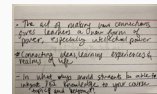 • The act of making own connections
gives learners a unique form of
power, especially intellectual power
• Connecting ideas, learning experiences &
realms of life
• In what ways would students be able to
knowledge to your career